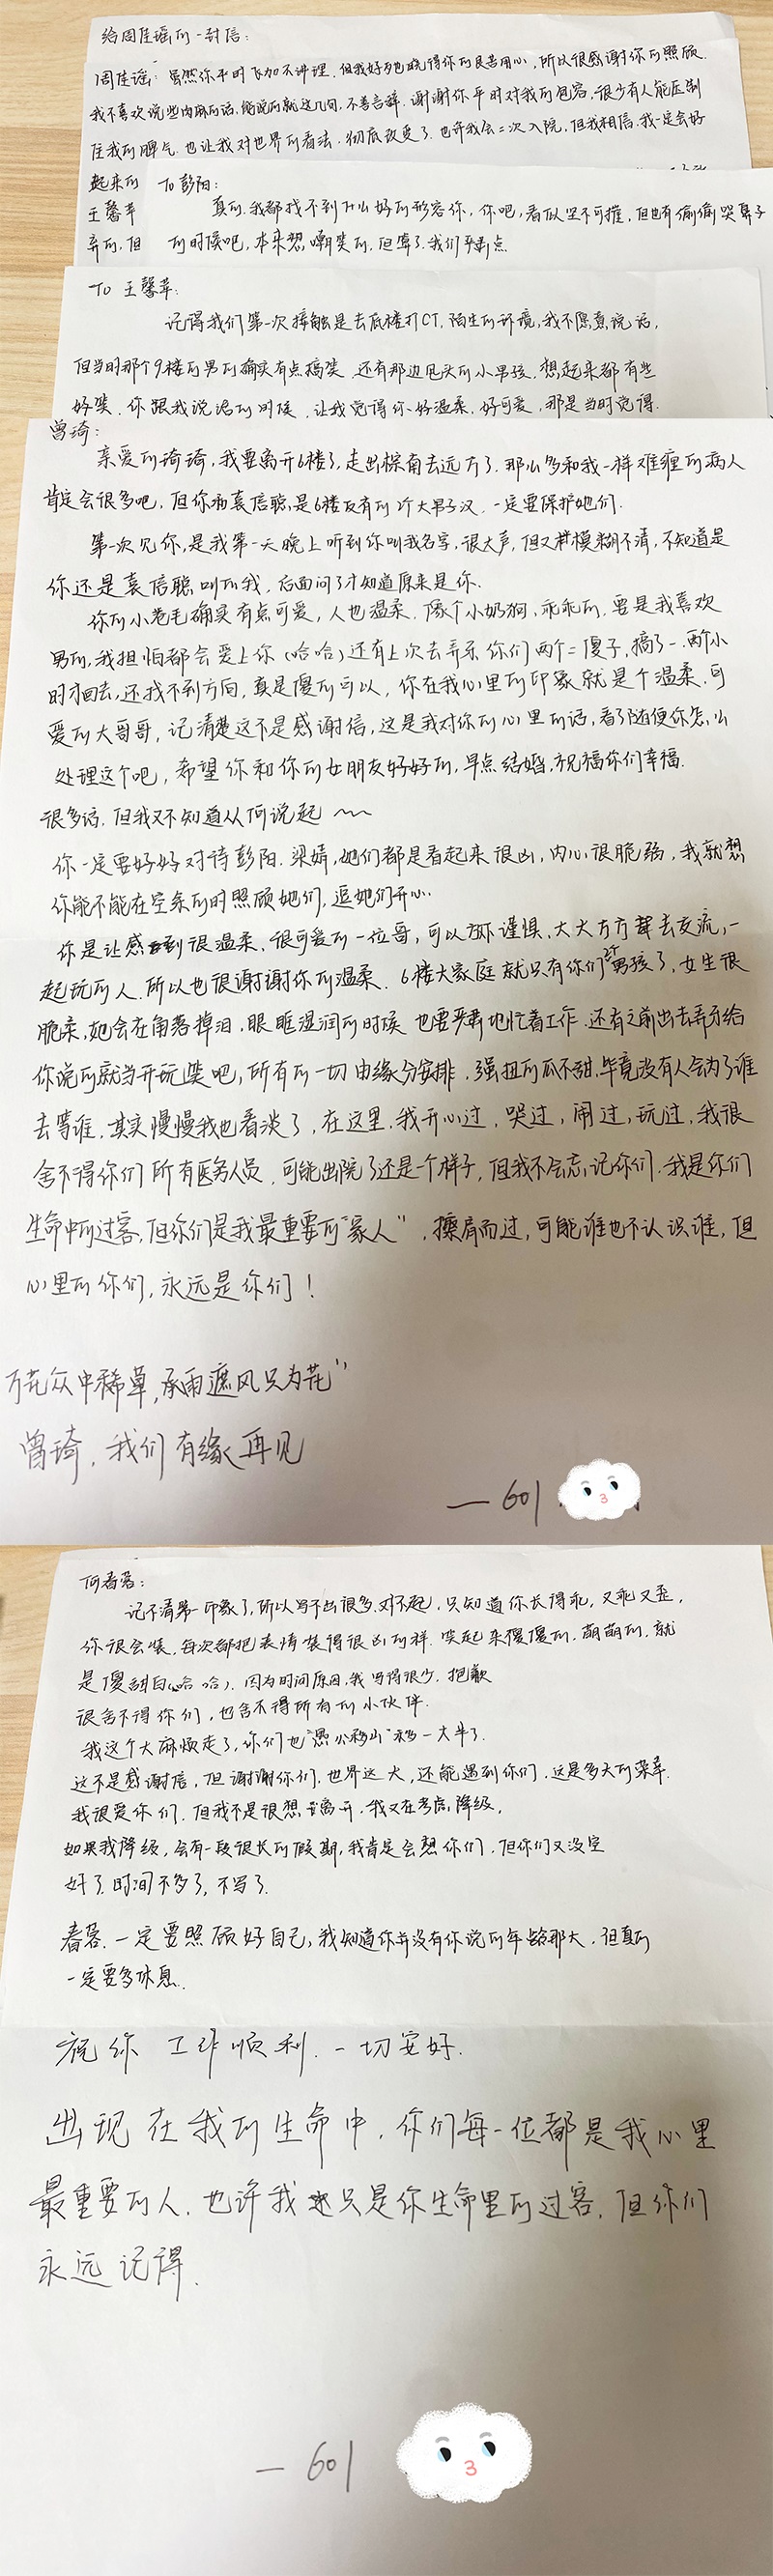 给周佳瑶的一封信：
周佳瑶：虽然你平时飞加不讲理，但我好歹也晓得你的良苦用心，所以很感谢你的照顾.
我不喜欢说些肉麻的话，能说的就这几句，不善言辞，谢谢你平时对我的包容，很少有人能压制
住我的脾气，也让我对世界的看法，彻底改变了，也许我会二次入院，但我相信，我一定会好
起来的
To 彭阳：
王馨苹
真的，我都找不到什么好的形容你，你吧，看似坚不可摧，但也有偷偷哭鼻子
弃的，但
的时候吧，本来想嘲笑的，但算了，我们平等点
To 王馨苹：
记得我们第一次接触是去底楼打CT，陌生的环境，我不愿意说话，
但当时那个9楼的男的确实有点搞笑，还有那边甩头的小男孩，想起来都有些
好笑，你跟我说话的时候，让我觉得你好温柔，好可爱，那是当时觉得.
曾琦：
亲爱的琦琦，我要离开6楼了，走出棕南去远方了，那么多和我一样难缠的病人
肯定会很多吧，但你和袁信聪，是6楼仅有的2个大男子汉，一定要保护她们.
第一次见你，是我第一天晚上听到你叫我名字，很大声，但又模糊不清，不知道是
你还是袁信聪叫的我，后面问了才知道原来是你.
你的小卷毛确实有点可爱，人也温柔，像个小奶狗，乖乖的，要是我喜欢
男的，我担怕都会爱上你（哈哈）还有上次去弄示你们两个二傻子，搞了一两个小
时才回去，还找不到方向，真是傻的可以，你在我心里的印象就是个温柔，可
爱的大哥哥，记清楚这不是感谢信，这是我对你的心里的话，看了随便你怎么
处理这个吧，希望你和你的女朋友好好的，早点结婚，祝福你们幸福.
很多话，但我又不知道从何说起～～
你一定要好好对待彭阳，梁婧，她们都是看起来很凶，内心很脆弱，我就想
你能不能在空余的时照顾她们，逗她们开心.
你是让感到很温柔，很可爱的一位哥，可以不谨惧，大大方方去交流，一
起玩的人，所以也很谢谢你的温柔，6楼大家庭就只有你们2个男孩了，女生很
脆柔，她会在角落掉泪，眼眶湿润的时候也要严肃地忙着工作，还有之前出去弄示给
你说的就当开玩笑吧，所有的一切由缘分安排，强扭的瓜不甜，毕竟没有人会为了谁
去等谁，其实慢慢我也看淡了，在这里，我开心过，哭过，闹过，玩过，我很
舍不得你们所有医务人员，可能出院了还是一个样子，但我不会忘记你们，我是你们
生命中的过客，但你们是我最重要的“家人”，擦肩而过，可能谁也不认识谁，但
心里的你们，永远是你们！
万花众中稀草，承雨遮风只为花”
曾琦，我们有缘再见
—601
何春蓉：
记不清第一印象了，所以写不出很多，对不起，只知道你长得乖，又乖又歪，
你很会装，每次都把表情装得很凶的样，笑起来傻傻的，萌萌的，就
是傻甜白（哈哈），因为时间原因，我写得很少，抱歉
很舍不得你们，也舍不得所有的小伙伴.
我这个大麻烦走了，你们也“愚公移山”移一大半了.
这不是感谢信，但谢谢你们，世界这大，还能遇到你们，这是多大的荣幸.
我很爱你们，但我不是很想要离开，我又在考虑降级，
如果我降级，会有一段很长的假期，我肯定会想你们，但你们又没空
好了，时间不多了，不写了.
春蓉，一定要照顾好自己，我知道你并没有你说的年龄那大，但真的
一定要多休息.
祝你工作顺利，一切安好.
出现在我的生命中，你们每一位都是我心里
最重要的人，也许我只是你生命里的过客，但你们
永远记得.
—601